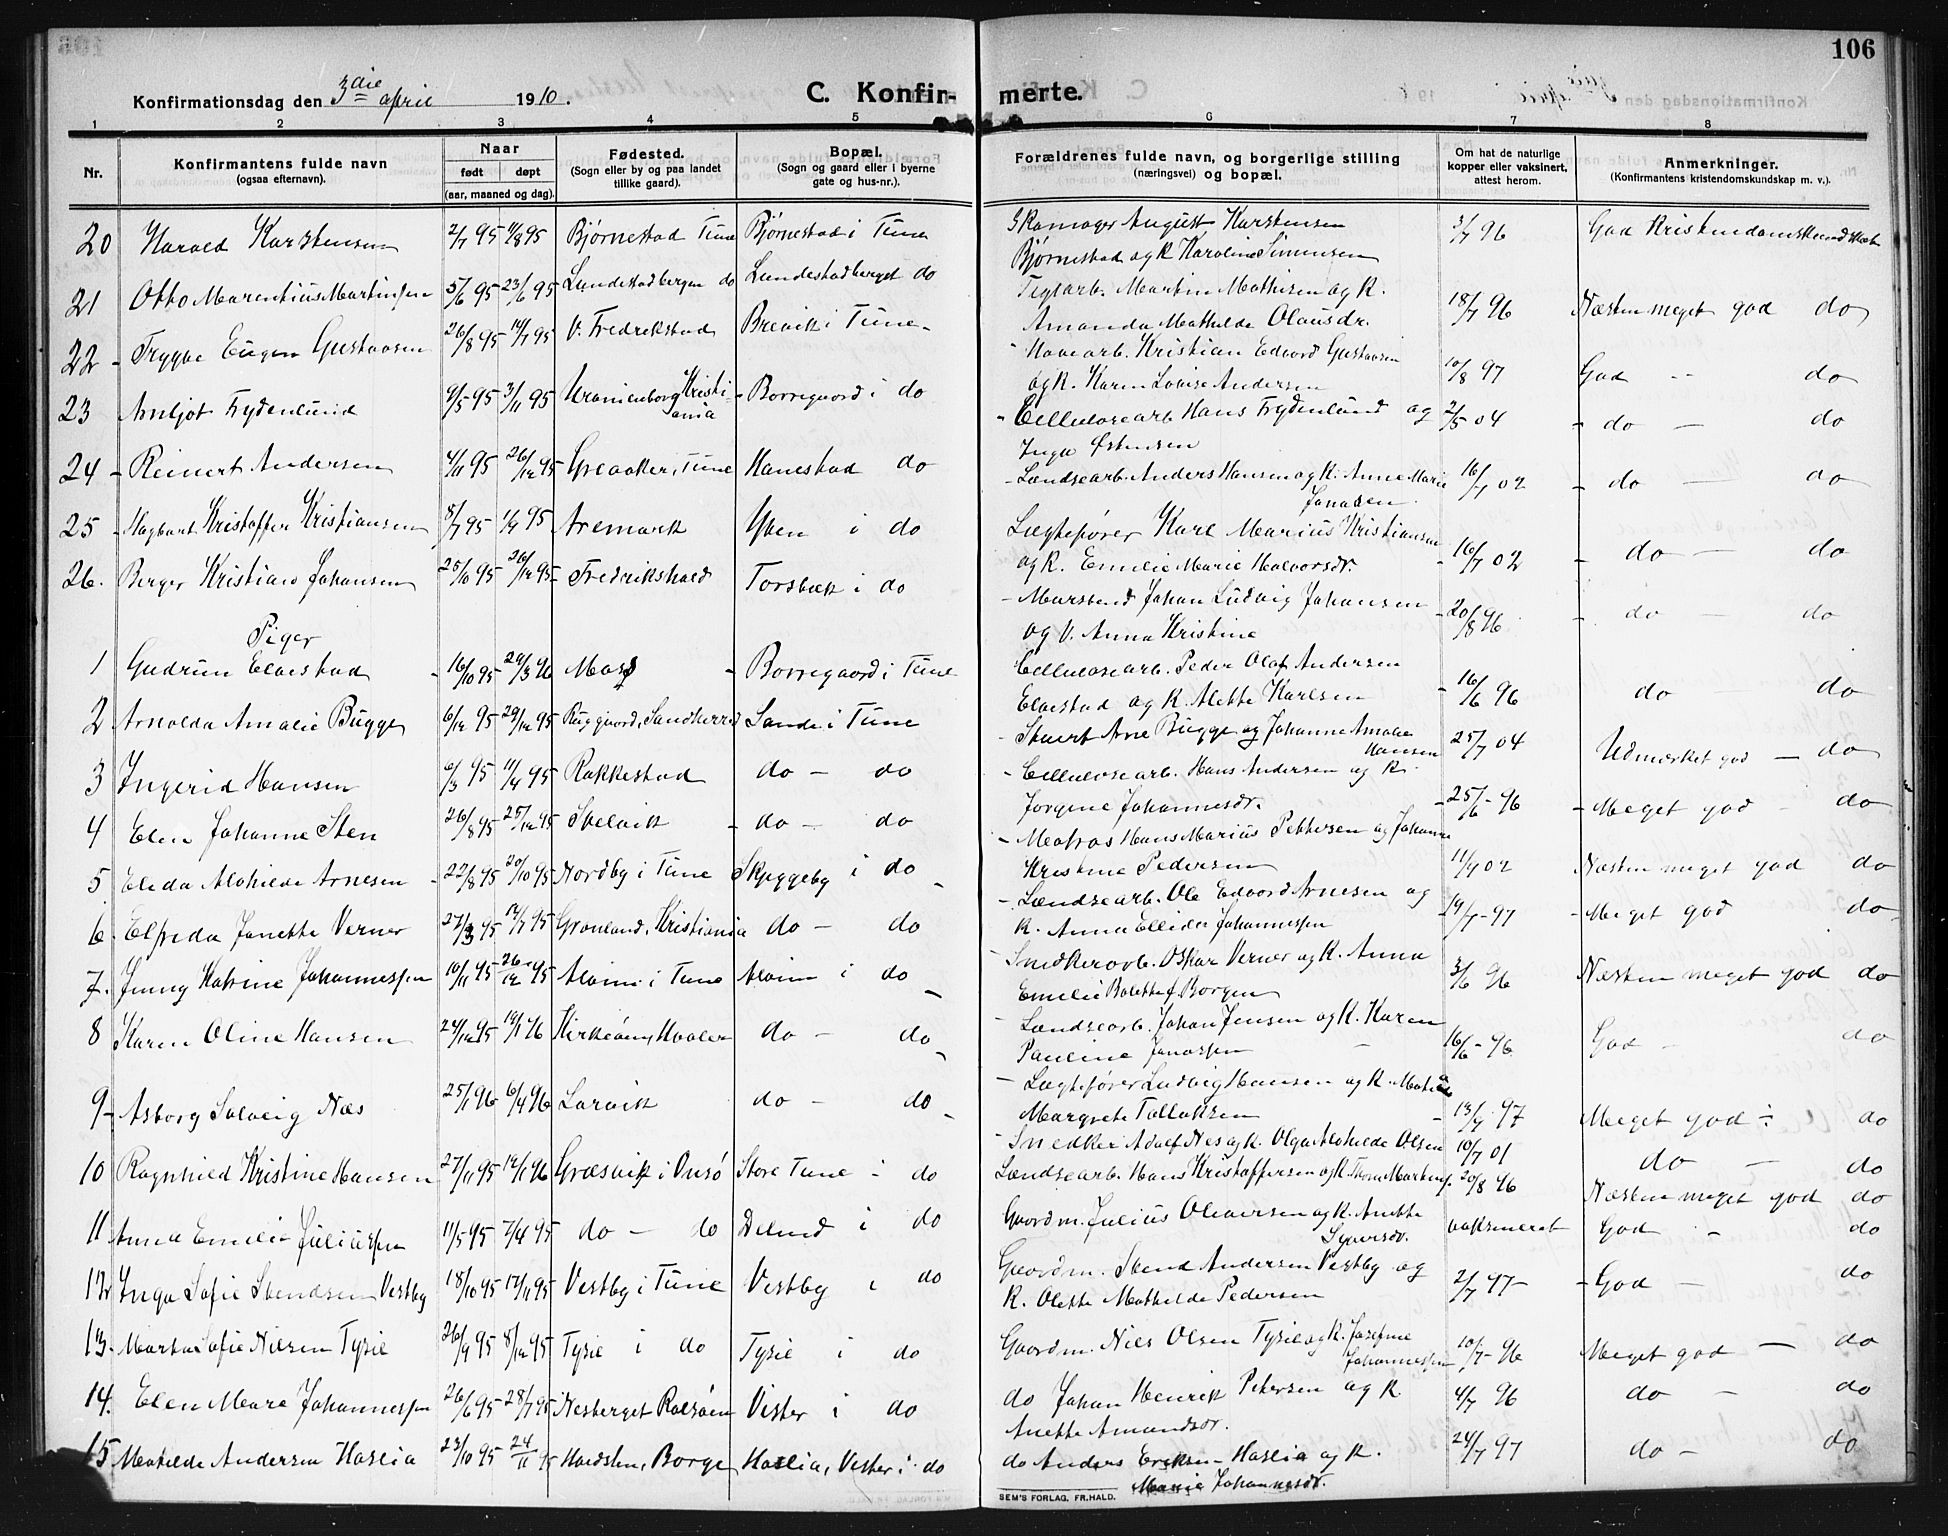 106
Konfirmationsdag den 3die april 1910.
C. Konfirmerte.
1 2 3 4 5 6 7 8
Nr.
Konfirmantens fulde navn
(ogsaa efternavn).
Naar
født døpt
(aar, maaned og dag).
Fødested.
(Sogn eller by og paa landet
tillike gaard).
Bopæl.
(Sogn og gaard eller i byerne
gate og hus-nr.).
Forældrenes fulde navn, og borgerlige stilling
(næringsvei) og bopæl.
Om hat de naturlige
kopper eller vaksinert,
attest herom.
Anmerkninger.
(Konfirmantens kristendomskundskap m. v.).
20 Harald Karstensen 2/7 95 11/8 95 Bjørnestad Tune Bjørnestad i Tune Skomager August Karstensen 3/7 96 God Kristendomskundskab
Bjørnestad og K. Karoline Simensen
21 Otto Marentius Martinsen 5/6 95 23/6 95 Lundestadbergen do Lundestadberget do Teglarb. Martin Mathisen og K. 18/7 96 Næsten meget god do
Amanda Mathilde Olausdr.
22 - Trygve Eugen Gustavsen 26/8 95 14/7 95 V. Fredrikstad Brevik i Tune - Havearb. Kristian Edvard Gustavsen 10/8 97 God -- do
og K. Karen Lovise Andersen
23 Arnljot Frydenlund 9/5 95 3/11 95 Uranienborg Kristiania - Borregaard i do - Cellulosearb. Hans Frydenlund og 2/5 04 - do - do
Inga Østensen
24 - Reinert Andersen 4/11 95 26/12 95 Greaaker, Tune Hanestad do - Lændsearb. Anders Hansen og K. Anne Marie 16/7 02 - do - do
Jonasen
25 - Hagbart Kristoffer Kristiansen 8/7 95 1/9 95 Aremark Yven i do Lægtefører Karl Marius Kristiansen 16/7 02 - do - do
og K. Emilie Marie Halvorsdr.
26. Berger Kristian Johansen 25/10 95 26/12 95 Fredrikshald Torsbæk i do - Murersvend Johan Ludvig Johansen 20/8 96 - do - do
og V. Anna Kristine
Piger
1 Gudrun Elvestad - 16/10 95 29/3 96 Moss - Borregaard i Tune Cellulosearb. Peder Olaf Andersen 16/6 96 do do
Elvestad og K. Alette Karlsen
2 Arnolda Amalie Bugge 6/12 95 29/12 95 Ruggaard, Sandherred Sande i Tune - Skuert Arne Bugge og Johanne Amalie 25/7 04 Udmærket god - do
Hansen
3 Ingerid Hansen 6/3 95 11/4 95 Rakkestad do - do - Cellulosearb. Hans Andersen og K. - 25/6 - 96 - Meget god - do
Jorgine Johannesdr.
4 Elen Johanne Sten 26/8 95 25/12 95 Svelvik - do - do - Matros Hans Marius Pettersen og Johanne 11/9 02 Næsten meget god do
Kristine Pedersen
5 Elida Alvhilde Arnesen - 22/8 95 20/10 95 Nordby i Tune Skjeggeby i do - - Lændsearb. Ole Edvard Arnesen og 19/7 - 97 - Meget god do
K. Anna Ellida Johannessen
6. Elfrida Janette Verner 27/3 95 14/7 95 Grønland, Kristiania do - do - Snedkerarb. Oskar Verner og K. Anna 3/6 96 Næsten meget god do
Emilie Bolette f. Borgen
7. Jenny Katrine Johannessen 10/11 95 26/12 95 Alvim i Tune Alvim i do - - Lændsearb. Johan Jensen og K. Karen 16/6 - 96 God - do
Pauline Jonassen
8 Karen Oline Hansen 24/12 95 19/1 96 Kirkeøen, Hvaler do - do - - Lægtefører Ludvig Hansen og K. Mathilde 13/9 97 Meget god ÷ do
Margrete Tollaksen
9 - Asborg Solveig Næs 25/1 96 6/4 96 Larvik do - do - - Snedker Adolf Nes og K. Olga Alvhilde Olsen 10/7 01 do - do
10 Ragnhild Kristine Hansen 27/11 95 12/1 96 Græsvik i Onsø Store Tune i do Lændsearb. Hans Kristoffersen og K. Thora Martins. 20/8 96 Næsten meget god do
11 Anna Emilie Juliussen 11/5 95 7/4 95 do - do Delind i do Gaardm. Julius Olaversen og K. Anette vaksineret God - do
Syversdr.
12 Inga Sofie Svendsen Vestby 18/10 95 17/11 95 Vestby i Tune Vestby i do Gaardm. Svend Andersen Vestby og 2/7 97 - - God - do
K. Olette Mathilde Pedersen
13. Marta Sofie Nilsen Tysie 26/9 95 8/12 95 Tysie i do Tysie i do Gaardm. Niels Olsen Tysie og K. Josefine 10/7 - 96 Meget god - do
Johannessen
14. Elen Marie Johannessen 26/6 95 28/7 95 Nesberget Rolsøen Vister i do do Johan Henrik Petersen og K. 4/7 96 do - do
Anette Amundsdr.
15 Mathilde Andersen Haslia 23/10 95 24/11 95 Hardsten, Borge Haslia, Vister i do do Anders Eriksen Haslia og K. 24/7 97 do - do
Marie Johannesdr.
SEM'S FORLAG, FR.HALD.